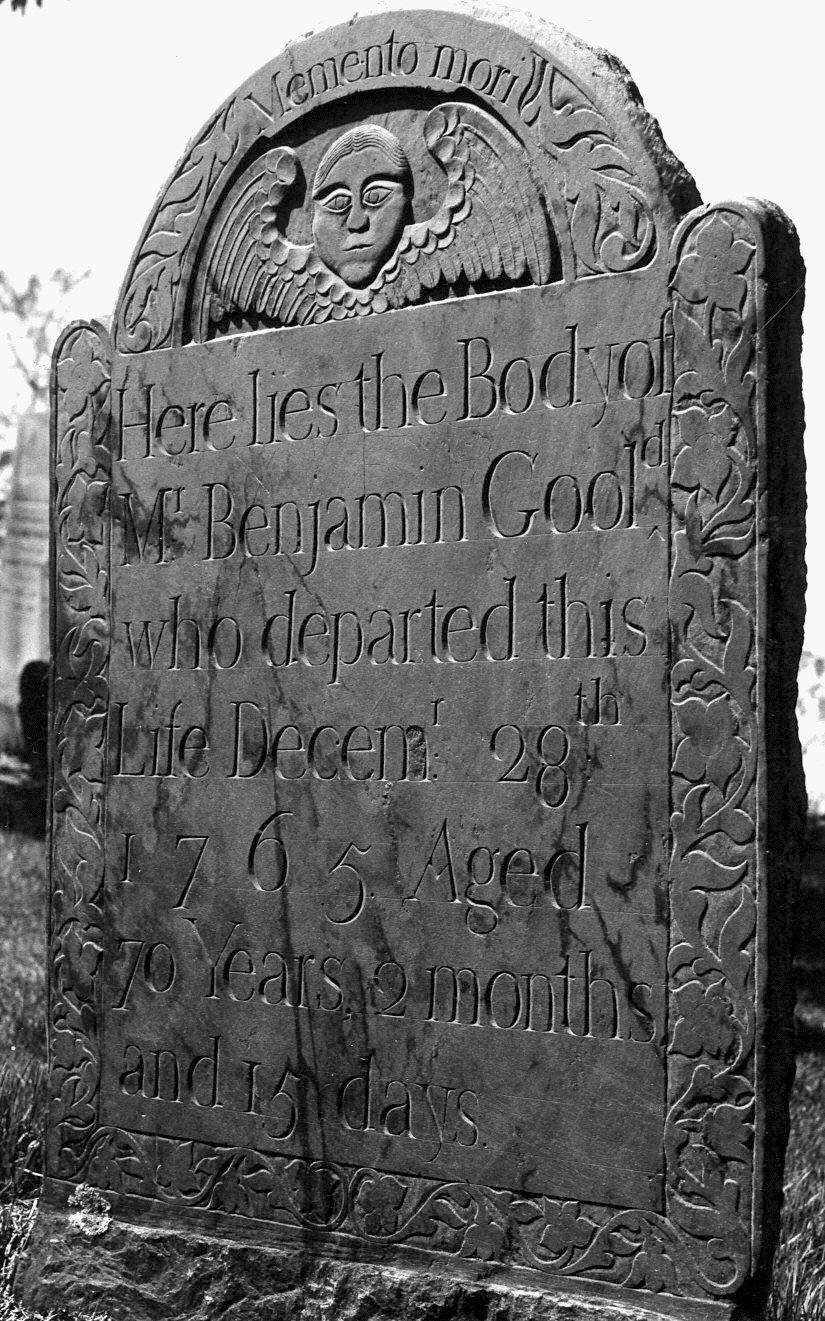 Memento mori
Here lies the Body of
Mr. Benjamin Goold,
who departed this
Life Decemr. 28th
1765. Aged
70 Years, 2 months
and 15 days.